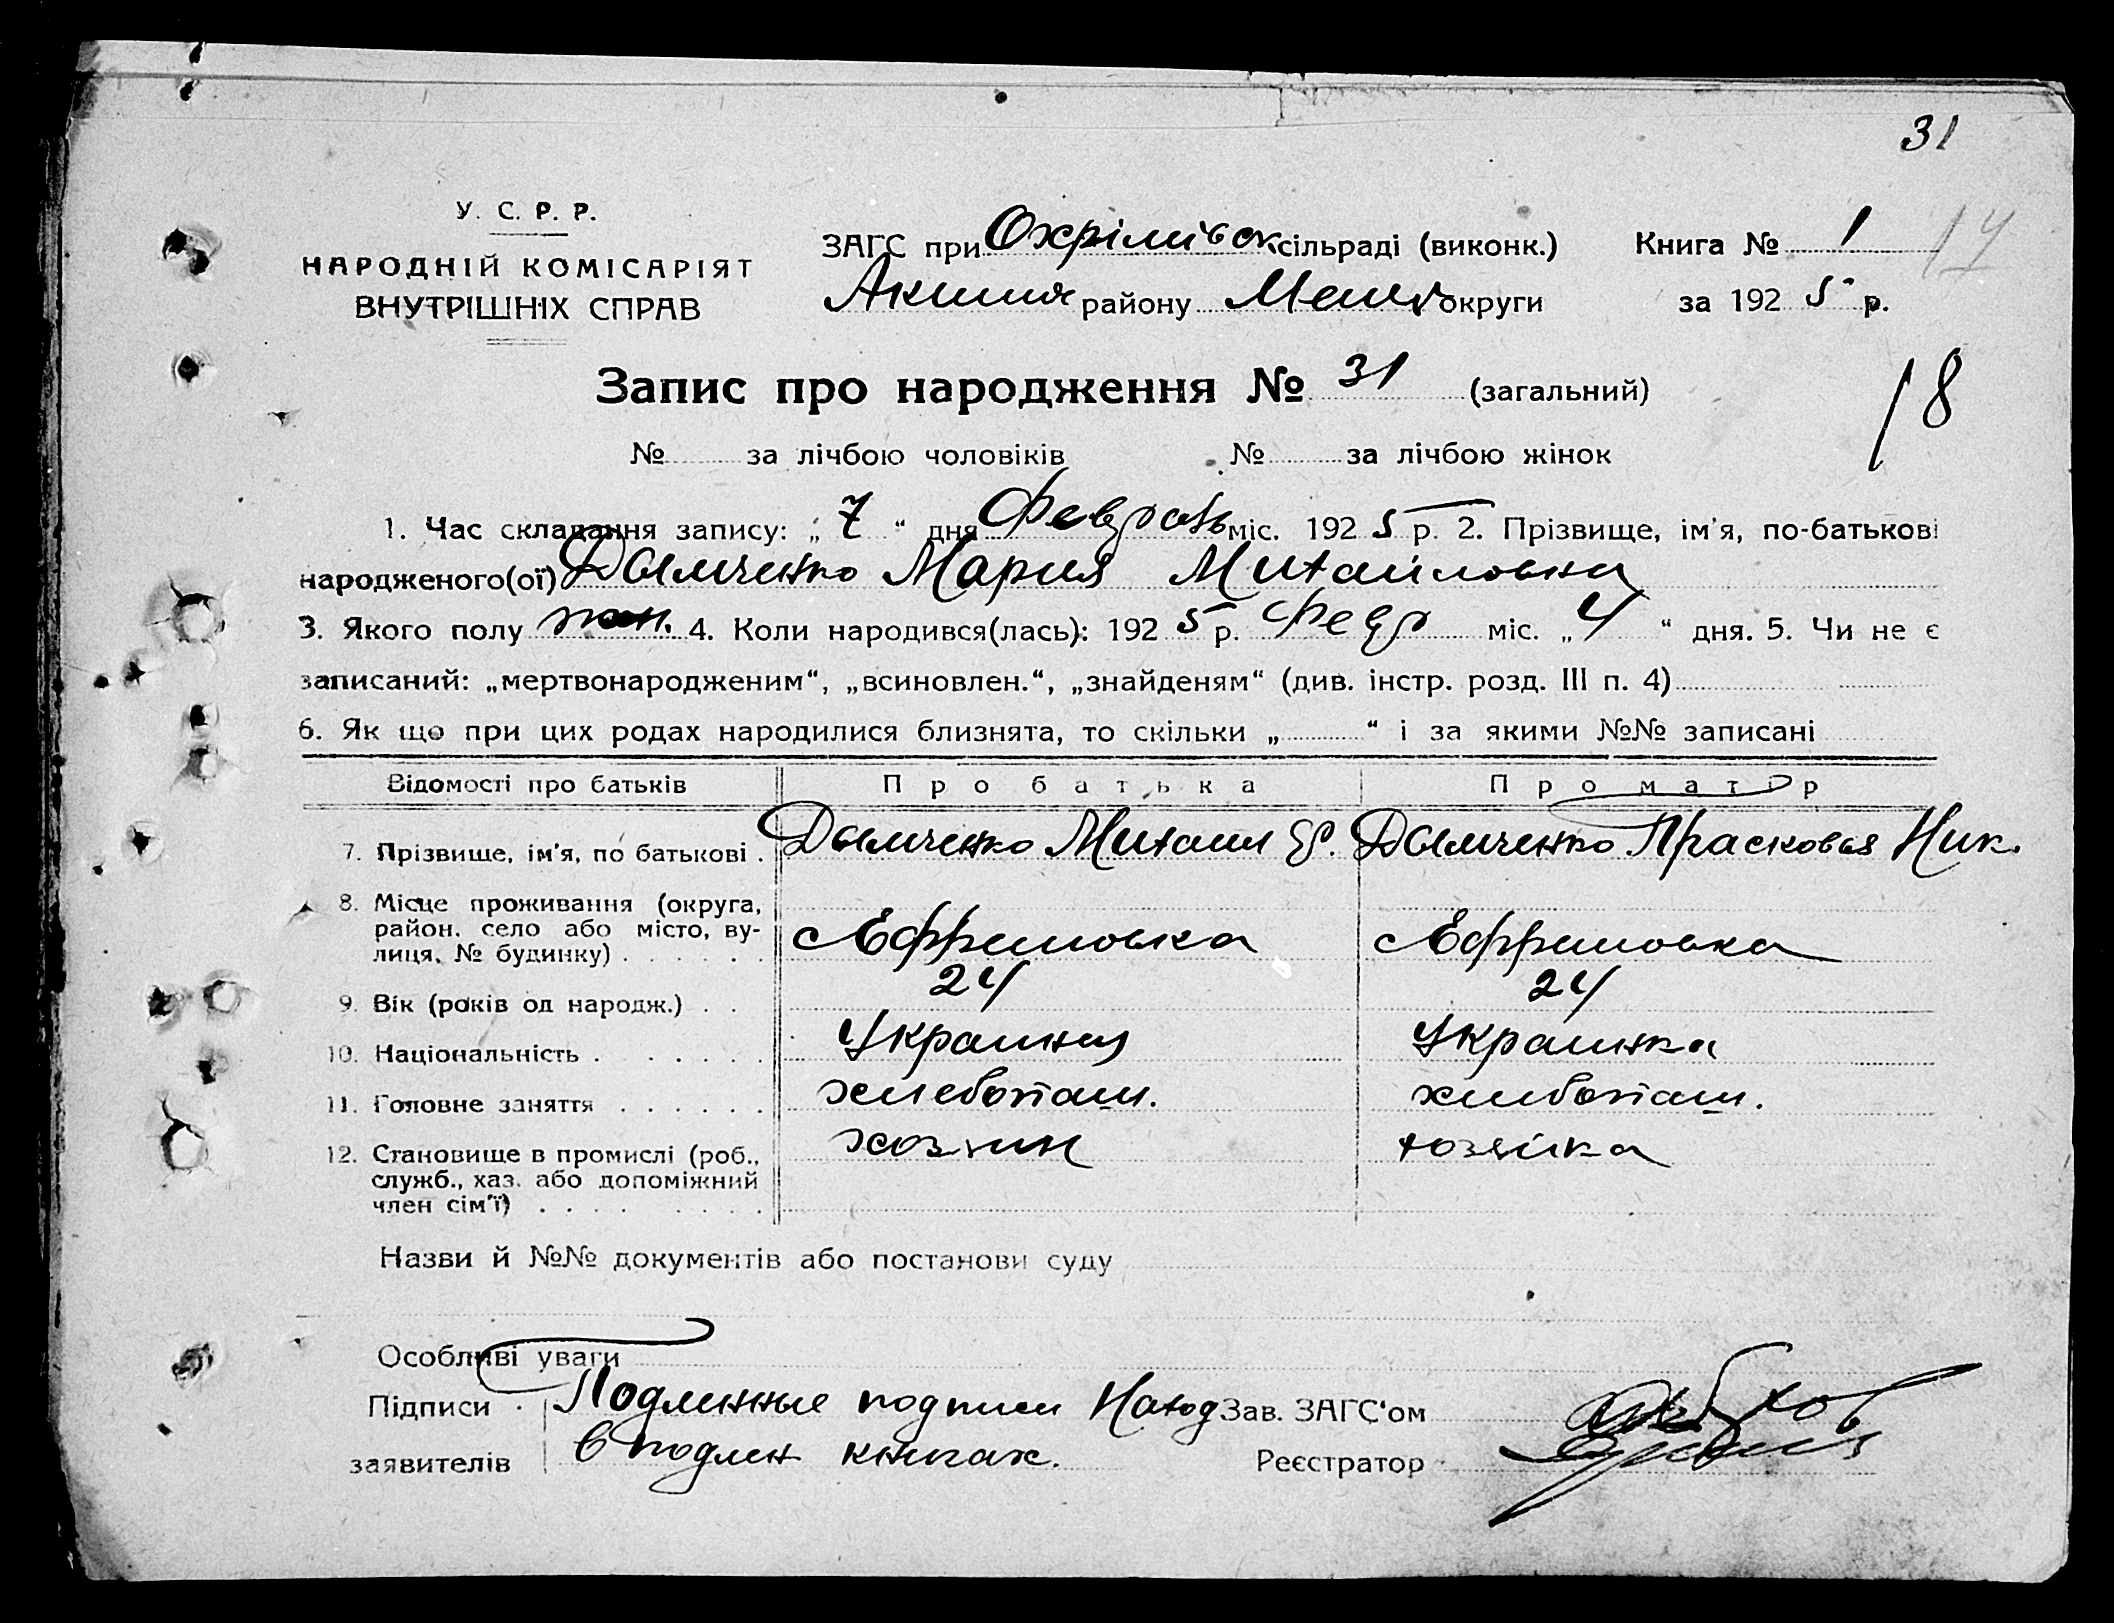 31
У. С. Р. Р.
НАРОДНІЙ КОМІСАРІЯТ
ВНУТРІШНІХ СПРАВ
ЗАГС при Охрімівск сільраді (виконк.) Книга № 1 17
району Меліт округи за 192 5 р.
Запис про народження № 31 (загальний)
18
№ за лічбою чоловіків № за лічбою жінок
1. Час складання запису: „ 7 “ дня Февраль міс. 192 5 р. 2. Прізвище, ім'я, по-батькові
народженого(ої) Дымченко Мария Михайловна
3. Якого полу жен. 4. Коли народився(лась): 192 5 р. Февр міс. „ 4 “ дня. 5. Чи не є
записаний: „мертвонародженим“, „всиновлен.“, „знайденям“ (див. інстр. розд. III п. 4)
6. Як що при цих родах народилися близнята, то скільки „ “ і за якими №№ записані
Відомості про батьків Про батька Про матір
7. Прізвище, ім'я, по батькові . Дымченко Михаил Дымченко Прасковья Ник.
8. Місце проживання (округа,
район, село або місто, ву-
лиця, № будинку) . . . . . . с Ефремовка с Ефремовка
9. Вік (років од народж.) . . 24 24
10. Національність . . . . . . Украинец Украинка
11. Головне заняття . . . . . . хлебопаш. хлебопаш.
12. Становище в промислі (роб.,
служб., хаз. або допоміжний
член сім'ї) . . . . . . . . хозяин хозяйка
Назви й №№ документів або постанови суду
Особливі уваги
Підписи Подлинные подписи Наход Зав. ЗАГС'ом
заявителів в подлен книгах. Реєстратор